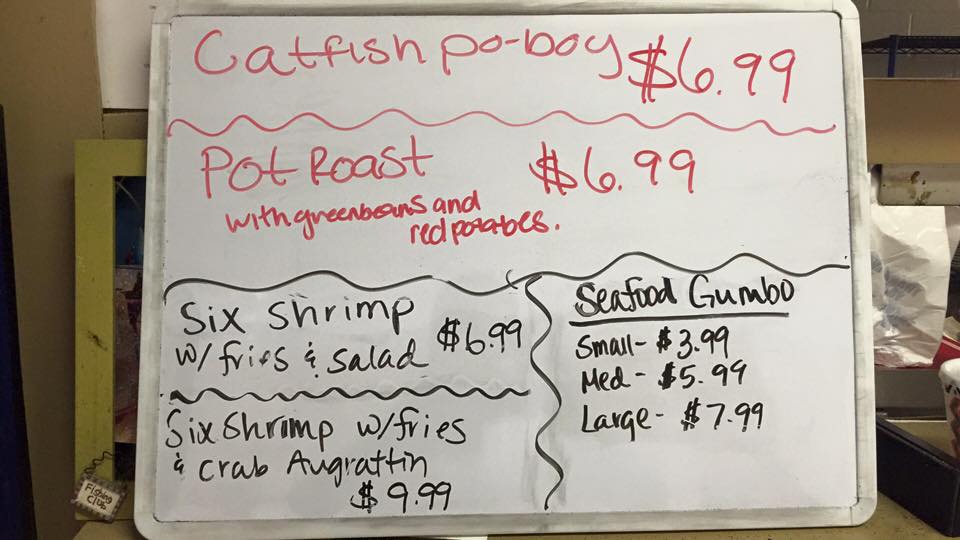 Catfish po-boy $6.99
Pot Roast $6.99
with greenbeans and
red potatoes.
Six shrimp
w/ fries & salad $6.99
Six shrimp w/fries
& crab Augrattin
$9.99
Seafood Gumbo
Small- $3.99
Med - $5.99
Large- $7.99
Fishing
Club